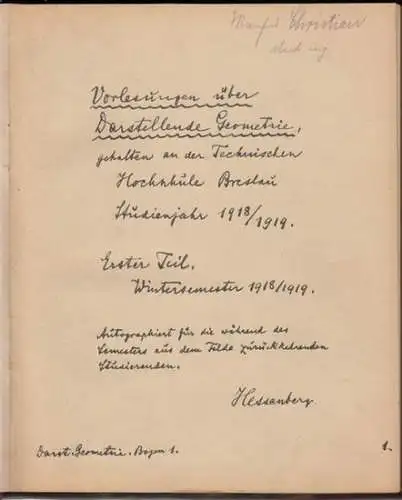 Manfred Christian
stud. ing
Vorlesungen über
Darstellende Geometrie,
gehalten an der Technischen
Hochschule Breslau
Studienjahr 1918/1919.
Erster Teil.
Wintersemester 1918/1919.
Autographiert für die während des
Semesters aus dem Felde zurückkehrenden
Studierenden.
Hessenberg.
Darst. Geometrie. Bogen 1.
1.